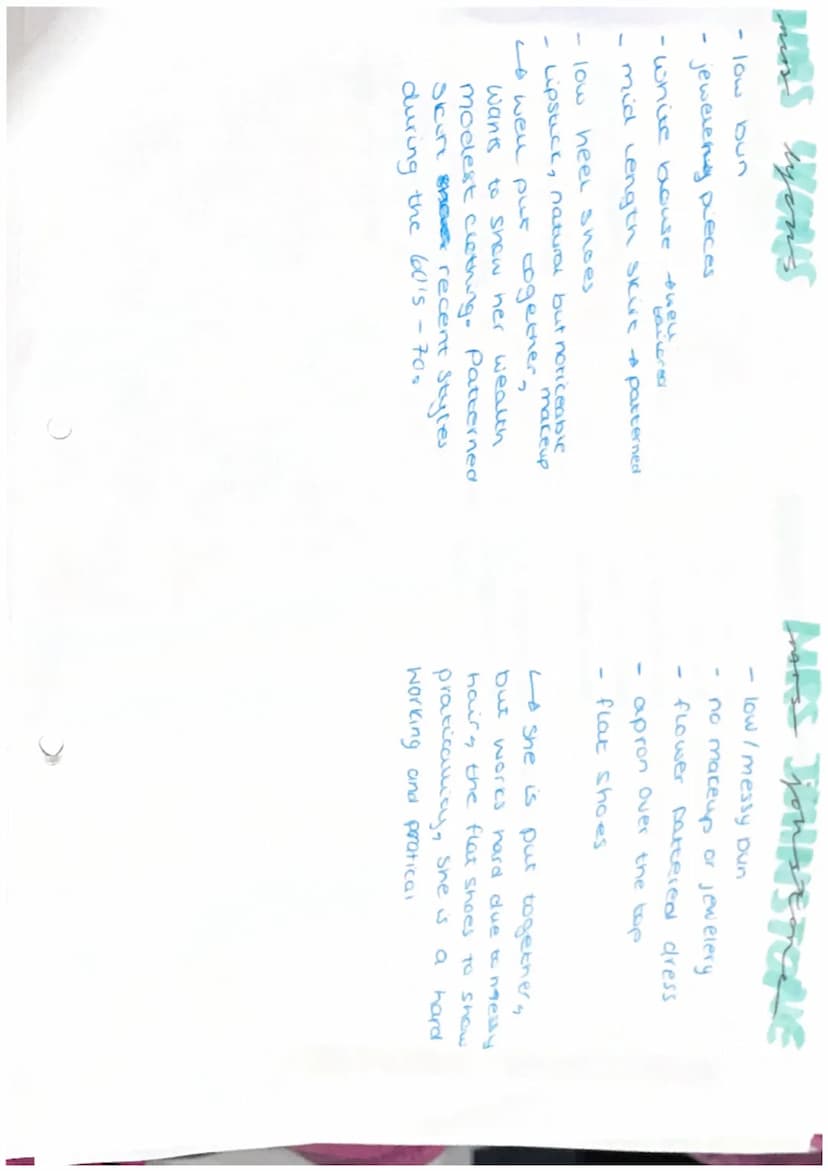 MRS LYONS
mrs lyons
- low bun
- jewelery pieces
- white blouse → well tailored
- mid length skirt → patterned
- low heel shoes
- Lipstick, natural but noticeable makeup
↳ well put together,
wants to show her wealth
modest clothing. Patterned
skirt recent styles
during the 60's - 70s
MRS JOHNSTONE
mrs johnstone
- low/messy bun
- no makeup or jewelery
- flower pattered dress
- apron over the top
- flat shoes
↳ She is put together,
but works hard due to messy
hair, the flat shoes to show
praticallity, she is a hard
working and pratical